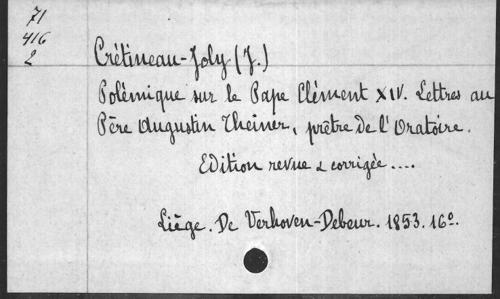 71
416
2
Crétineau-Joly (J.)
Polémique sur le Pape Clément XIV. Lettres au
Père Augustin Theiner, prêtre de l'Oratoire.
Edition revue & corrigée....
Liège. De Verhoven-Debeur. 1853. 16º.